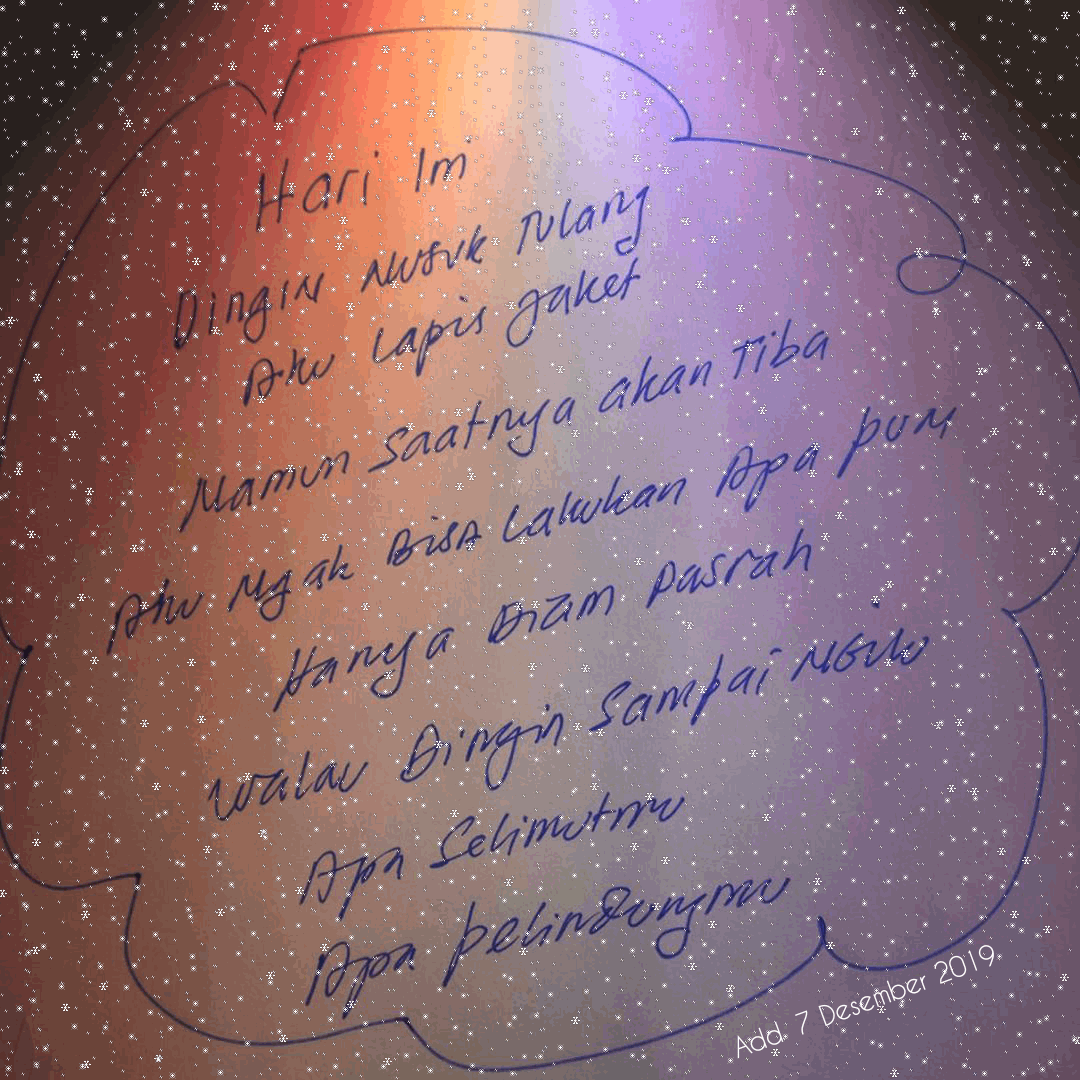 Hari Ini
Dingin Nusuk Tulang
Aku Lapis Jaket
Namun Saatnya akan Tiba
Aku Ngak Bisa Lakukan Apa pun
Hanya Diam pasrah
Walau Dingin Sampai NGilu
Apa Selimutmu
Apa pelindungmu
Add. 7 Desember 2019